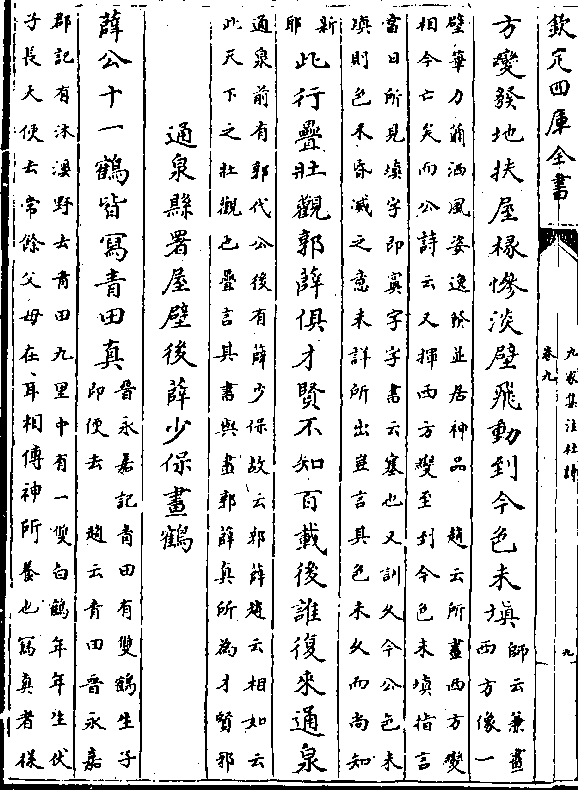 欽定四庫全書
九家集注杜詩
卷九
九
方變發地扶屋椽慘淡壁飛動到今色未填師云兼畫西方像一
壁筆力蕭洒風姿逸發並居神品　趙云所畫西方變
相今亡矣而公詩云又揮西方變至到今色未填指言
當日所見填字即窴字字書云塞也又訓久今公色未
填則色未昏滅之意未詳所出豈言其色未久而尚如
新耶此行疊壯觀郭薛俱才賢不知百載後誰復來通泉
通泉前有郭代公後有薛少保故云郭薛趙云相如云
此天下之壯觀也疊言其書與畫郭薛真所為才賢耶
通泉縣署屋壁後薛少保畫鶴
薛公十一鶴皆寫青田真晉永嘉記青田有雙鶴生子即便去　趙云青田晉永嘉
郡記有沐溪野去青田九里中有一雙白鶴年年生伏
子長大便去常餘父母在耳相傳神所養也寫真者保